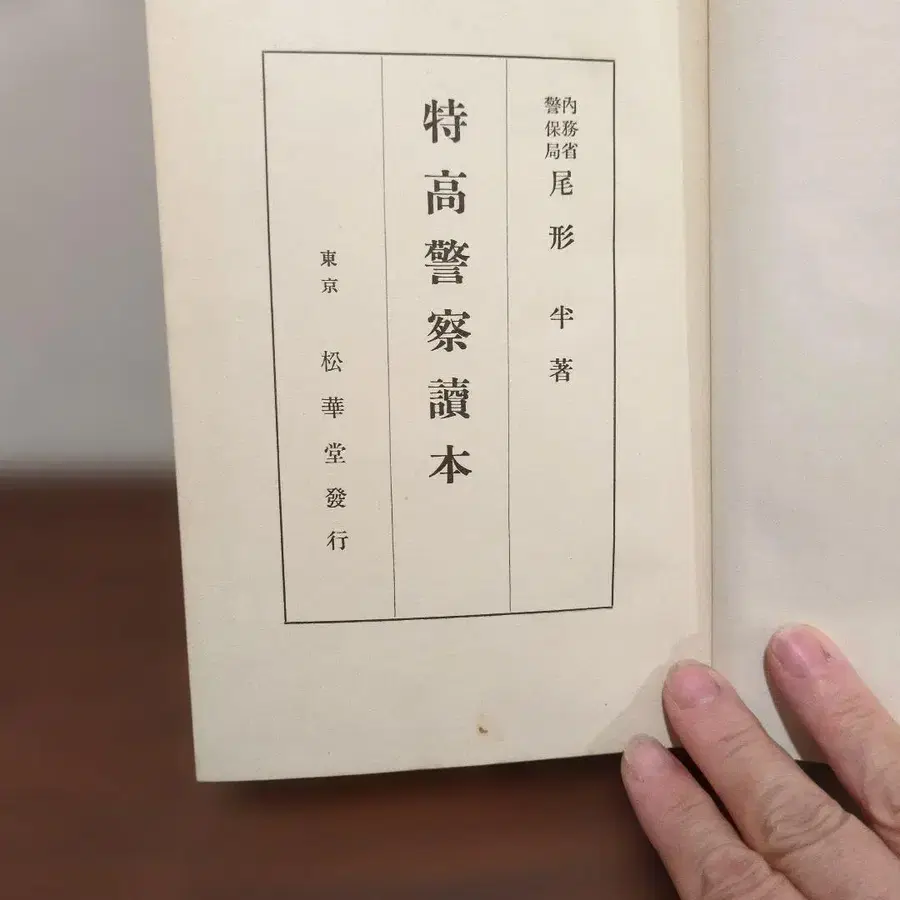 內務省
警保局
尾形半著
特高警察讀本
東京 松華堂發行